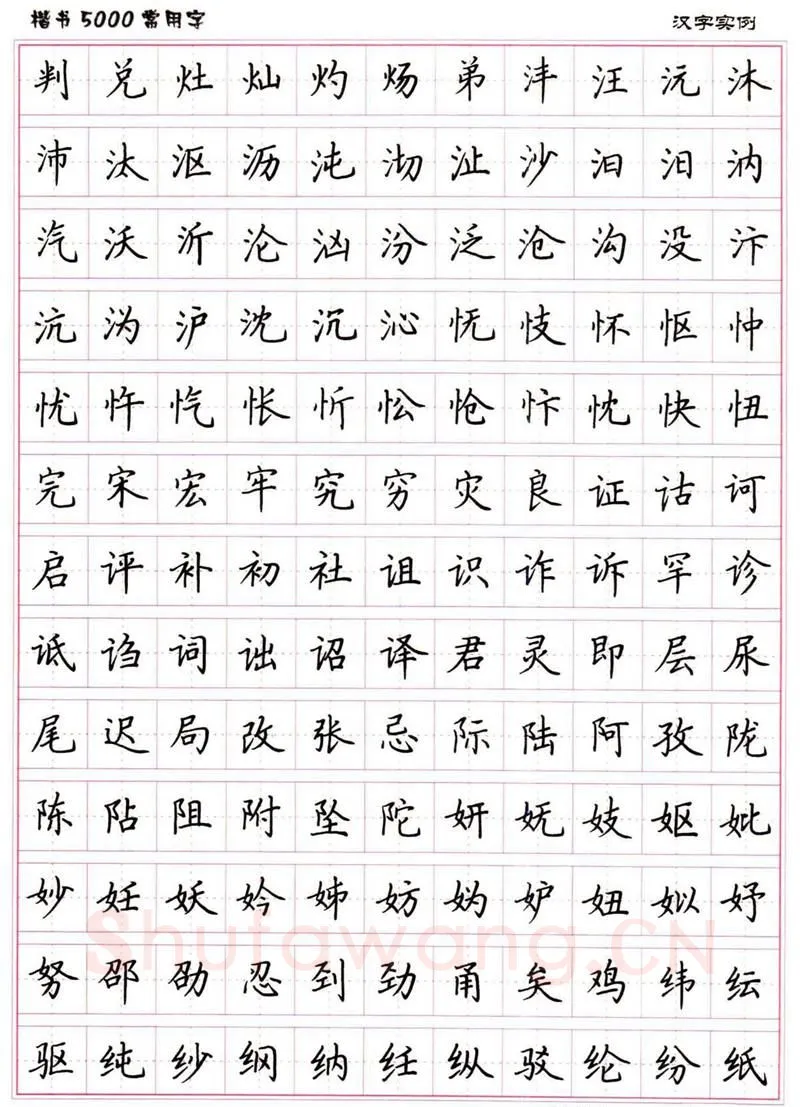 楷书5000常用字 汉字实例
判兑灶灿灼炀弟沣汪沅沐
沛汰沤沥沌沏沚沙汩汨汭
汽沃沂沦汹汾泛沧沟没汴
沆沩沪沈沉沁怃忮怀怄忡
忧忤忾怅忻忪怆忭忱快忸
完宋宏牢究穷灾良证诂诃
启评补初社诅识诈诉罕诊
诋诌词诎诏译君灵即层尿
尾迟局改张忌际陆阿孜陇
陈阽阻附坠陀妍妩妓妪妣
妙妊妖妗姊妨妫妒妞姒妤
努邵劭忍刭劲甬矣鸡纬纭
驱纯纱纲纳纴纵驳纶纷纸
Shufawang.CN